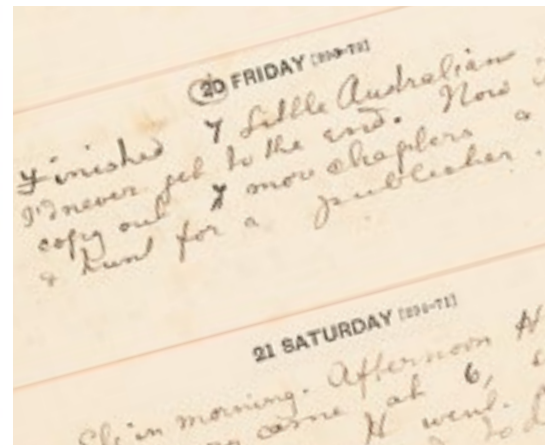 20 FRIDAY [293-72]
Finished 7 Little Australian
I'd never get to the end. Now
copy out 7 more chapters &
& hunt for a publisher.
21 SATURDAY [294-71]
in morning. Afternoon H
came at 6,
H went.